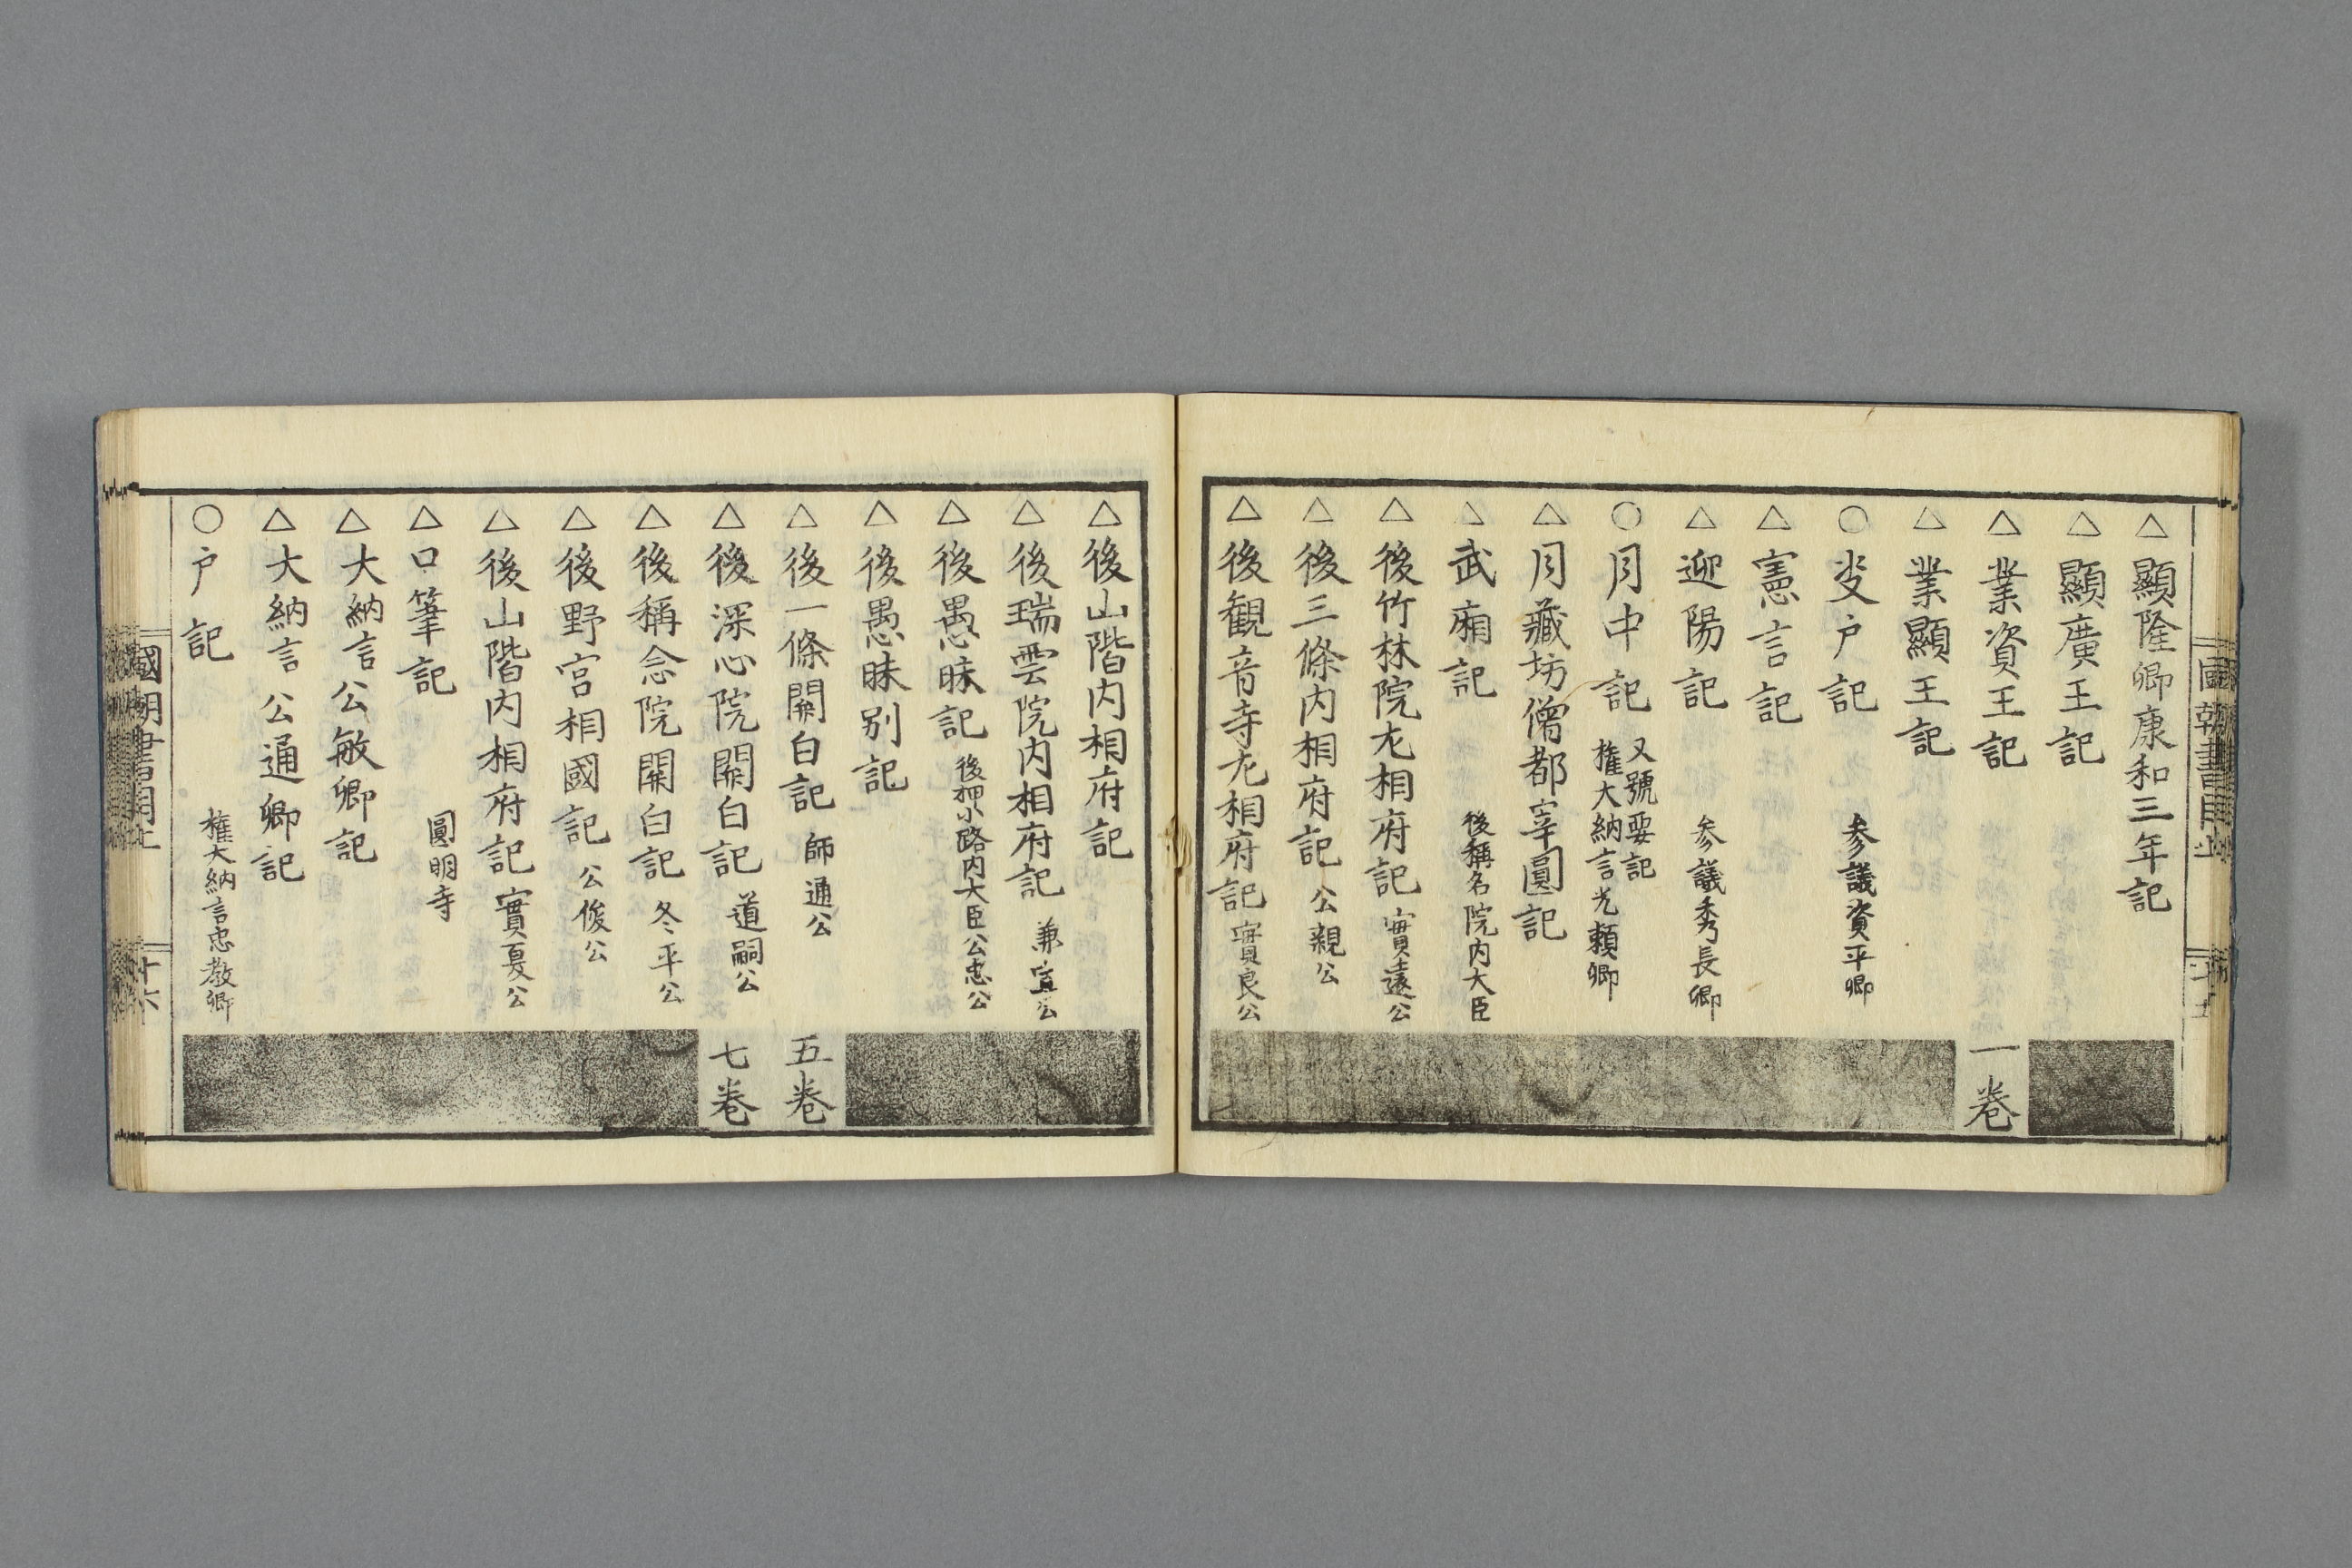 △顯隆卿康和三年記
△顯廣王記
△業資王記 一卷
△業顯王記
○㕝户記 参議資平卿
△憲言記
△迎陽記 参議秀長卿
○月中記 又號要記
權大納言光頼卿
△月藏坊僧都宰圓記
△武廂記 後稱名院内大臣
△後竹林院左相府記 實遠公
△後三條内相府記 公親公
△後観音寺左相府記 實良公
△後山階内相府記
△後瑞雲院内相府記 兼宣公
△後愚昧記 後押小路内大臣公忠公
△後愚昧别記
△後一條関白記 師通公 五卷
△後深心院関白記 道嗣公 七卷
△後稱念院関白記 冬平公
△後野宮相國記 公俊公
△後山階内相府記 實夏公
△口筆記 圓明寺
△大納言公敏卿記
△大納言公通卿記
○户記 權大納言忠教卿
國朝書目上 十六